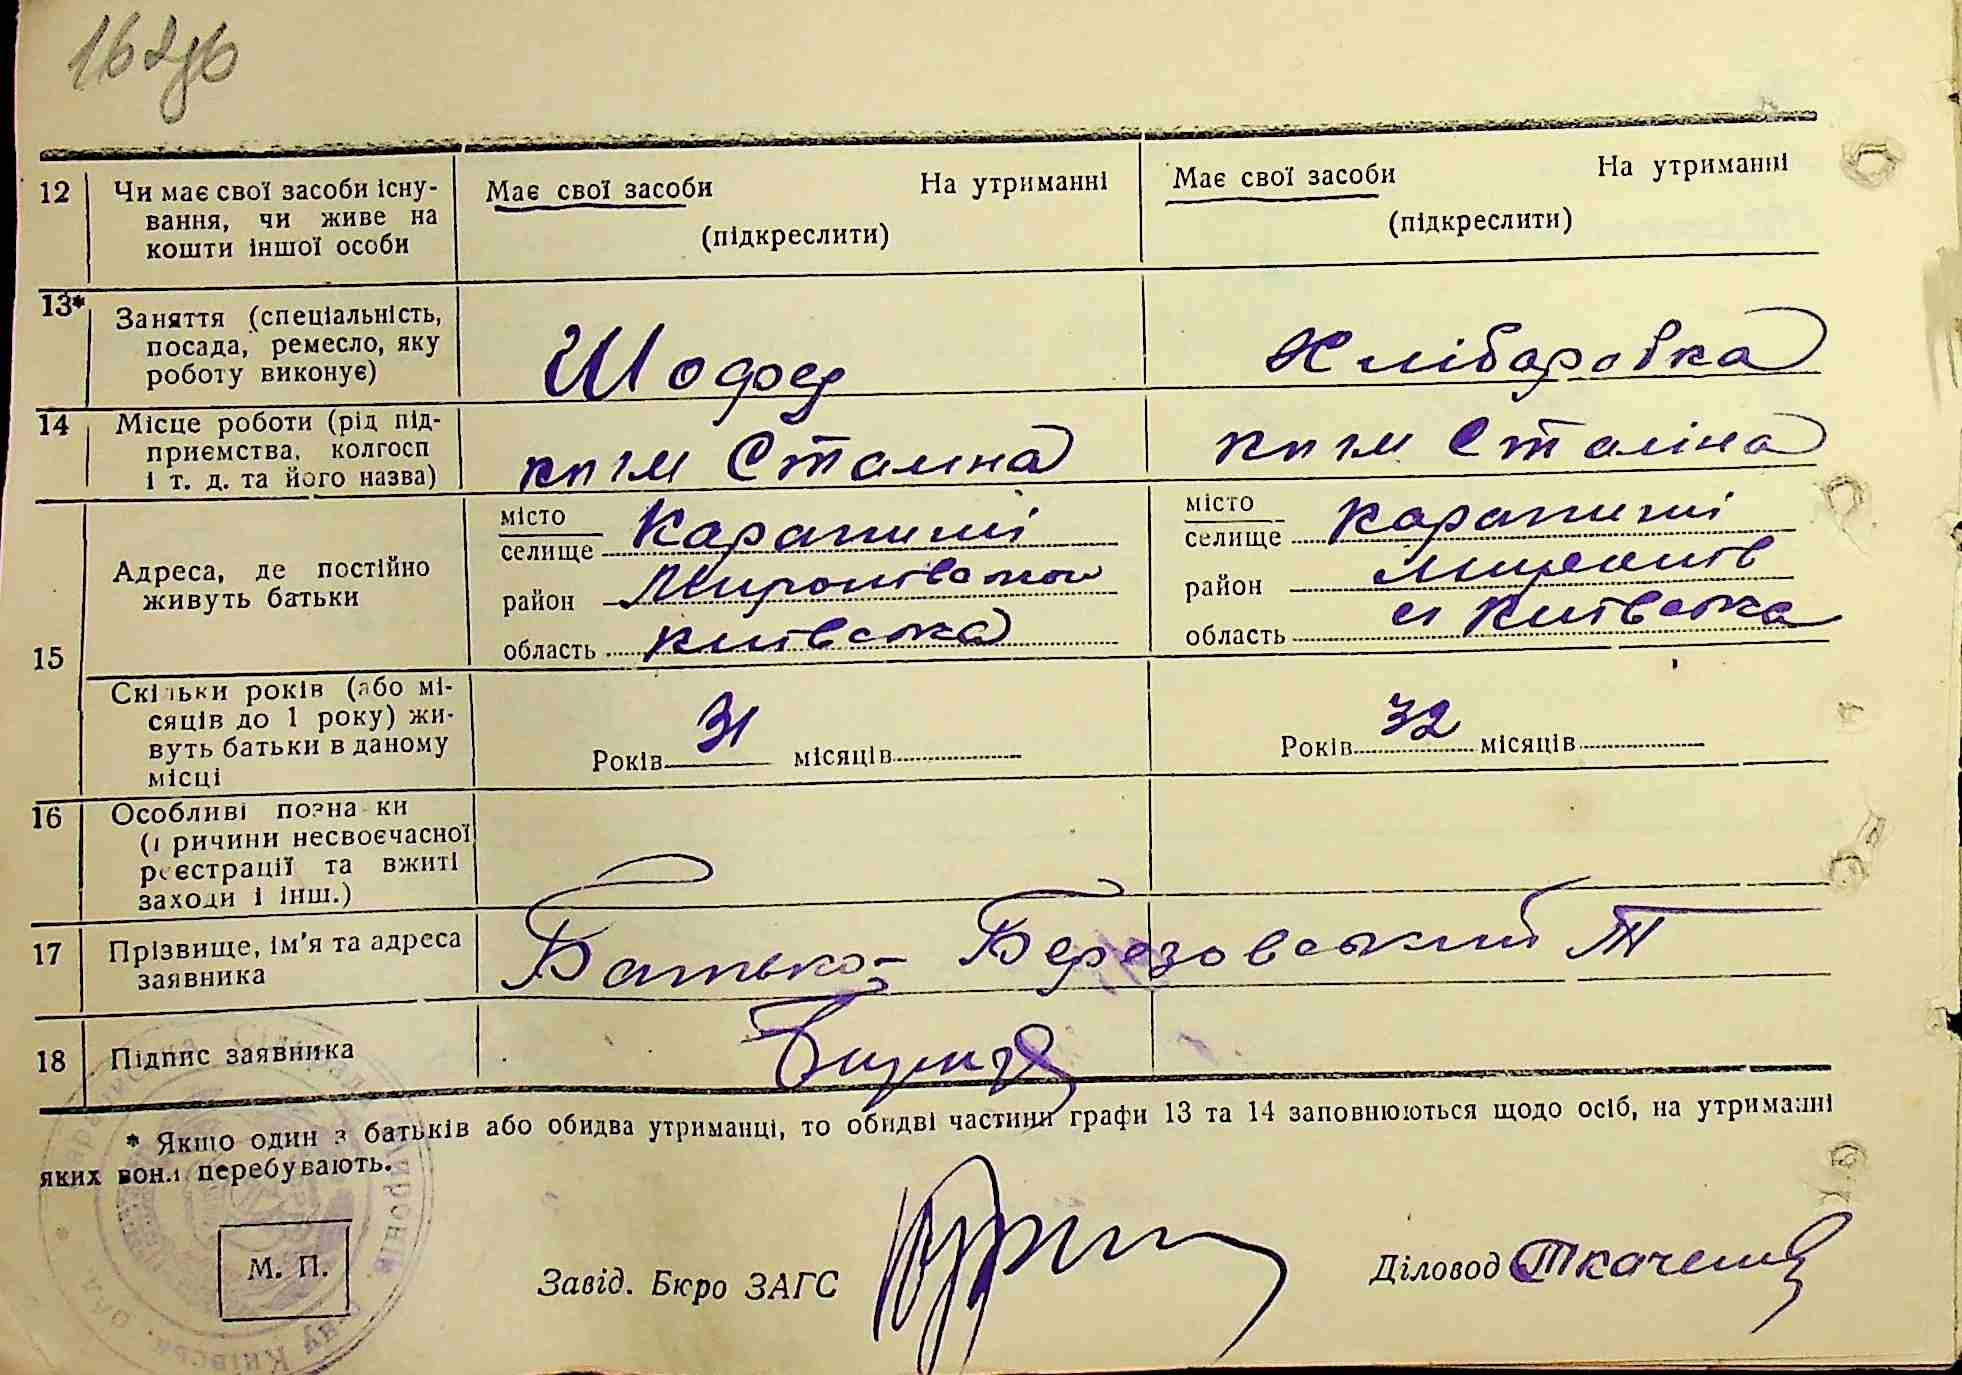 162зв
12 Чи має свої засоби існу- Має свої засоби На утриманні Має свої засоби На утриманні
вання, чи живе на (підкреслити) (підкреслити)
кошти іншої особи
13* Заняття (спеціальність,
посада, ремесло, яку Шофер Хліборобка
роботу виконує)
14 Місце роботи (рід під-
приємства, колгосп Сталіна Сталіна
і т. д. та його назва)
15 Адреса, де постійно живуть батьки
місто Карапиші місто Карапиші
селище селище
район Миронівський район Миронів
область Київська область Київська
Скільки років (або мі-
сяців до 1 року) жи-
вуть батьки в даному Років 31 місяців Років 32 місяців
місці
16 Особливі позначки
(причини несвоєчасної
реєстрації та вжиті
заходи і інш.)
17 Прізвище, ім'я та адреса Батько - Березовський Т
заявника
18 Підпис заявника
* Якщо один з батьків або обидва утриманці, то обидві частини графи 13 та 14 заповнюються щодо осіб, на утриманні
яких вони перебувають.
М. П.
Завід. Бюро ЗАГС Діловод Ткаченко